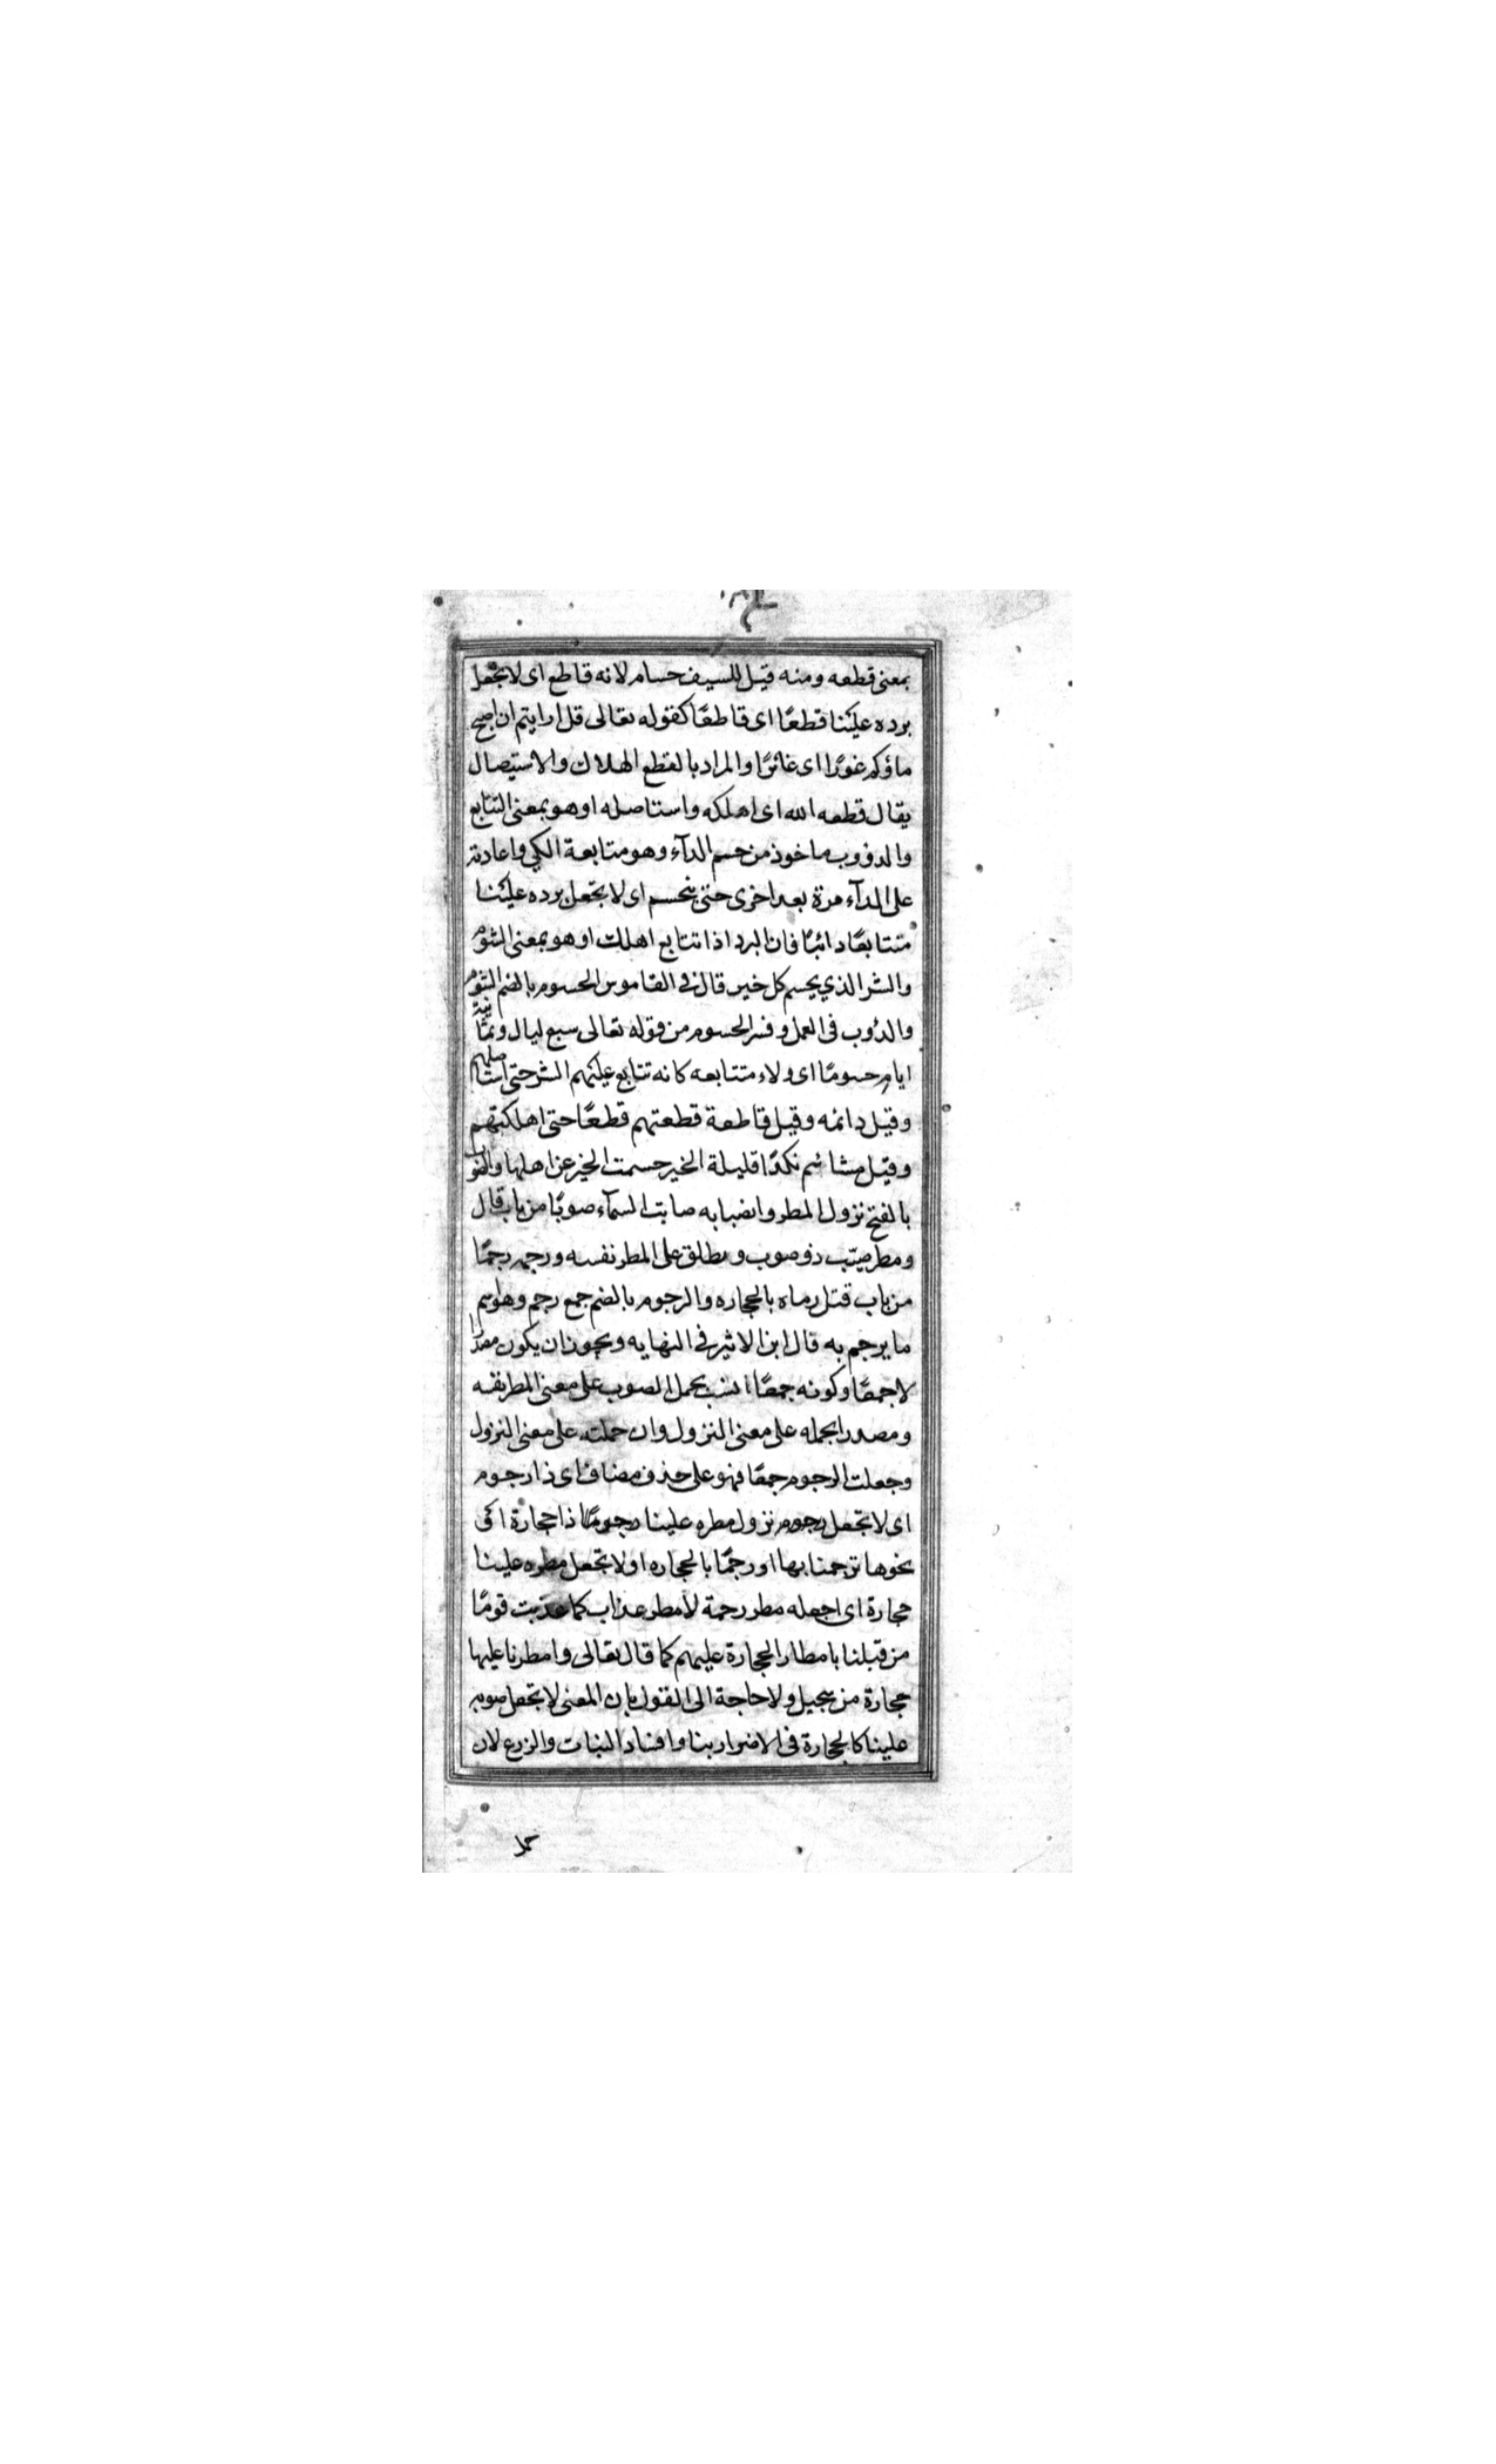 بمعنى قطعه ومنه قيل للسيف حسام لانه قاطع اى لا تجعل
برده علينا قطعًا اى قاطعًا كقوله تعالى قل ارايتم ان اصبح
ماؤكم غورًا اى غائرًا والمراد بالقطع الهلاك والاستيصال
يقال قطعه الله اى اهلكه واستاصله او هو بمعنى التتابع
والدؤوب ماخوذ من حسم الدآء وهو متابعة الكي واعادته
على الدآء مرة بعد اخرى حتى ينحسم اى لا تجعل برده علينا
متتابعًا دائبًا فان البرد اذا تتابع اهلك او هو بمعنى الشؤم
والشر الذي يحسم كل خير قال فى القاموس الحسوم بالضم الشؤم
والدؤب فى العمل وفسر الحسوم من قوله تعالى سبع ليال وثمانية
ايام حسومًا اى ولاء متتابعه كانه تتابع عليهم الشر حتى استاصلهم
وقيل دائمه وقيل قاطعة قطعتهم قطعًا حتى اهلكتهم
وقيل مشائم نكدًا قليلة الخير حسمت الخير عن اهلها والصوب
بالفتح نزول المطر وانصبابه صابت السمآء صوبًا من باب قال
ومطر صيّب ذو صوب ويطلق على المطر نفسه ورجمه رجمًا
من باب قتل رماه بالحجاره والرجوم بالضم جمع رجم وهو اسم
ما يرجم به قال ابن الاثير فى النهايه ويجوز ان يكون مصدرا
لا جمعًا وكونه جمعًا انسب بحمل الصوب على معنى المطر نفسه
ومصدرا بحمله على معنى النزول وان حملته على معنى النزول
وجعلت الرجوم جمعًا فهو على حذف مضاف اى ذا رجوم
اى لا تجعل رجوم نزول مطره علينا رجومًا ذا حجارة اى
نحوها ترجمنا بها او رجمًا بالحجاره او لا تجعل مطره علينا
حجارة اى اجعله مطر رحمة لا مطر عذاب كما عذبت قومًا
من قبلنا بامطار الحجارة عليهم كما قال تعالى وامطرنا عليها
حجارة من سجيل ولا حاجة الى القول بان المعنى لا تجعل صوبه
علينا كالحجارة فى الاضرار بنا وافساد النبات والزرع لان